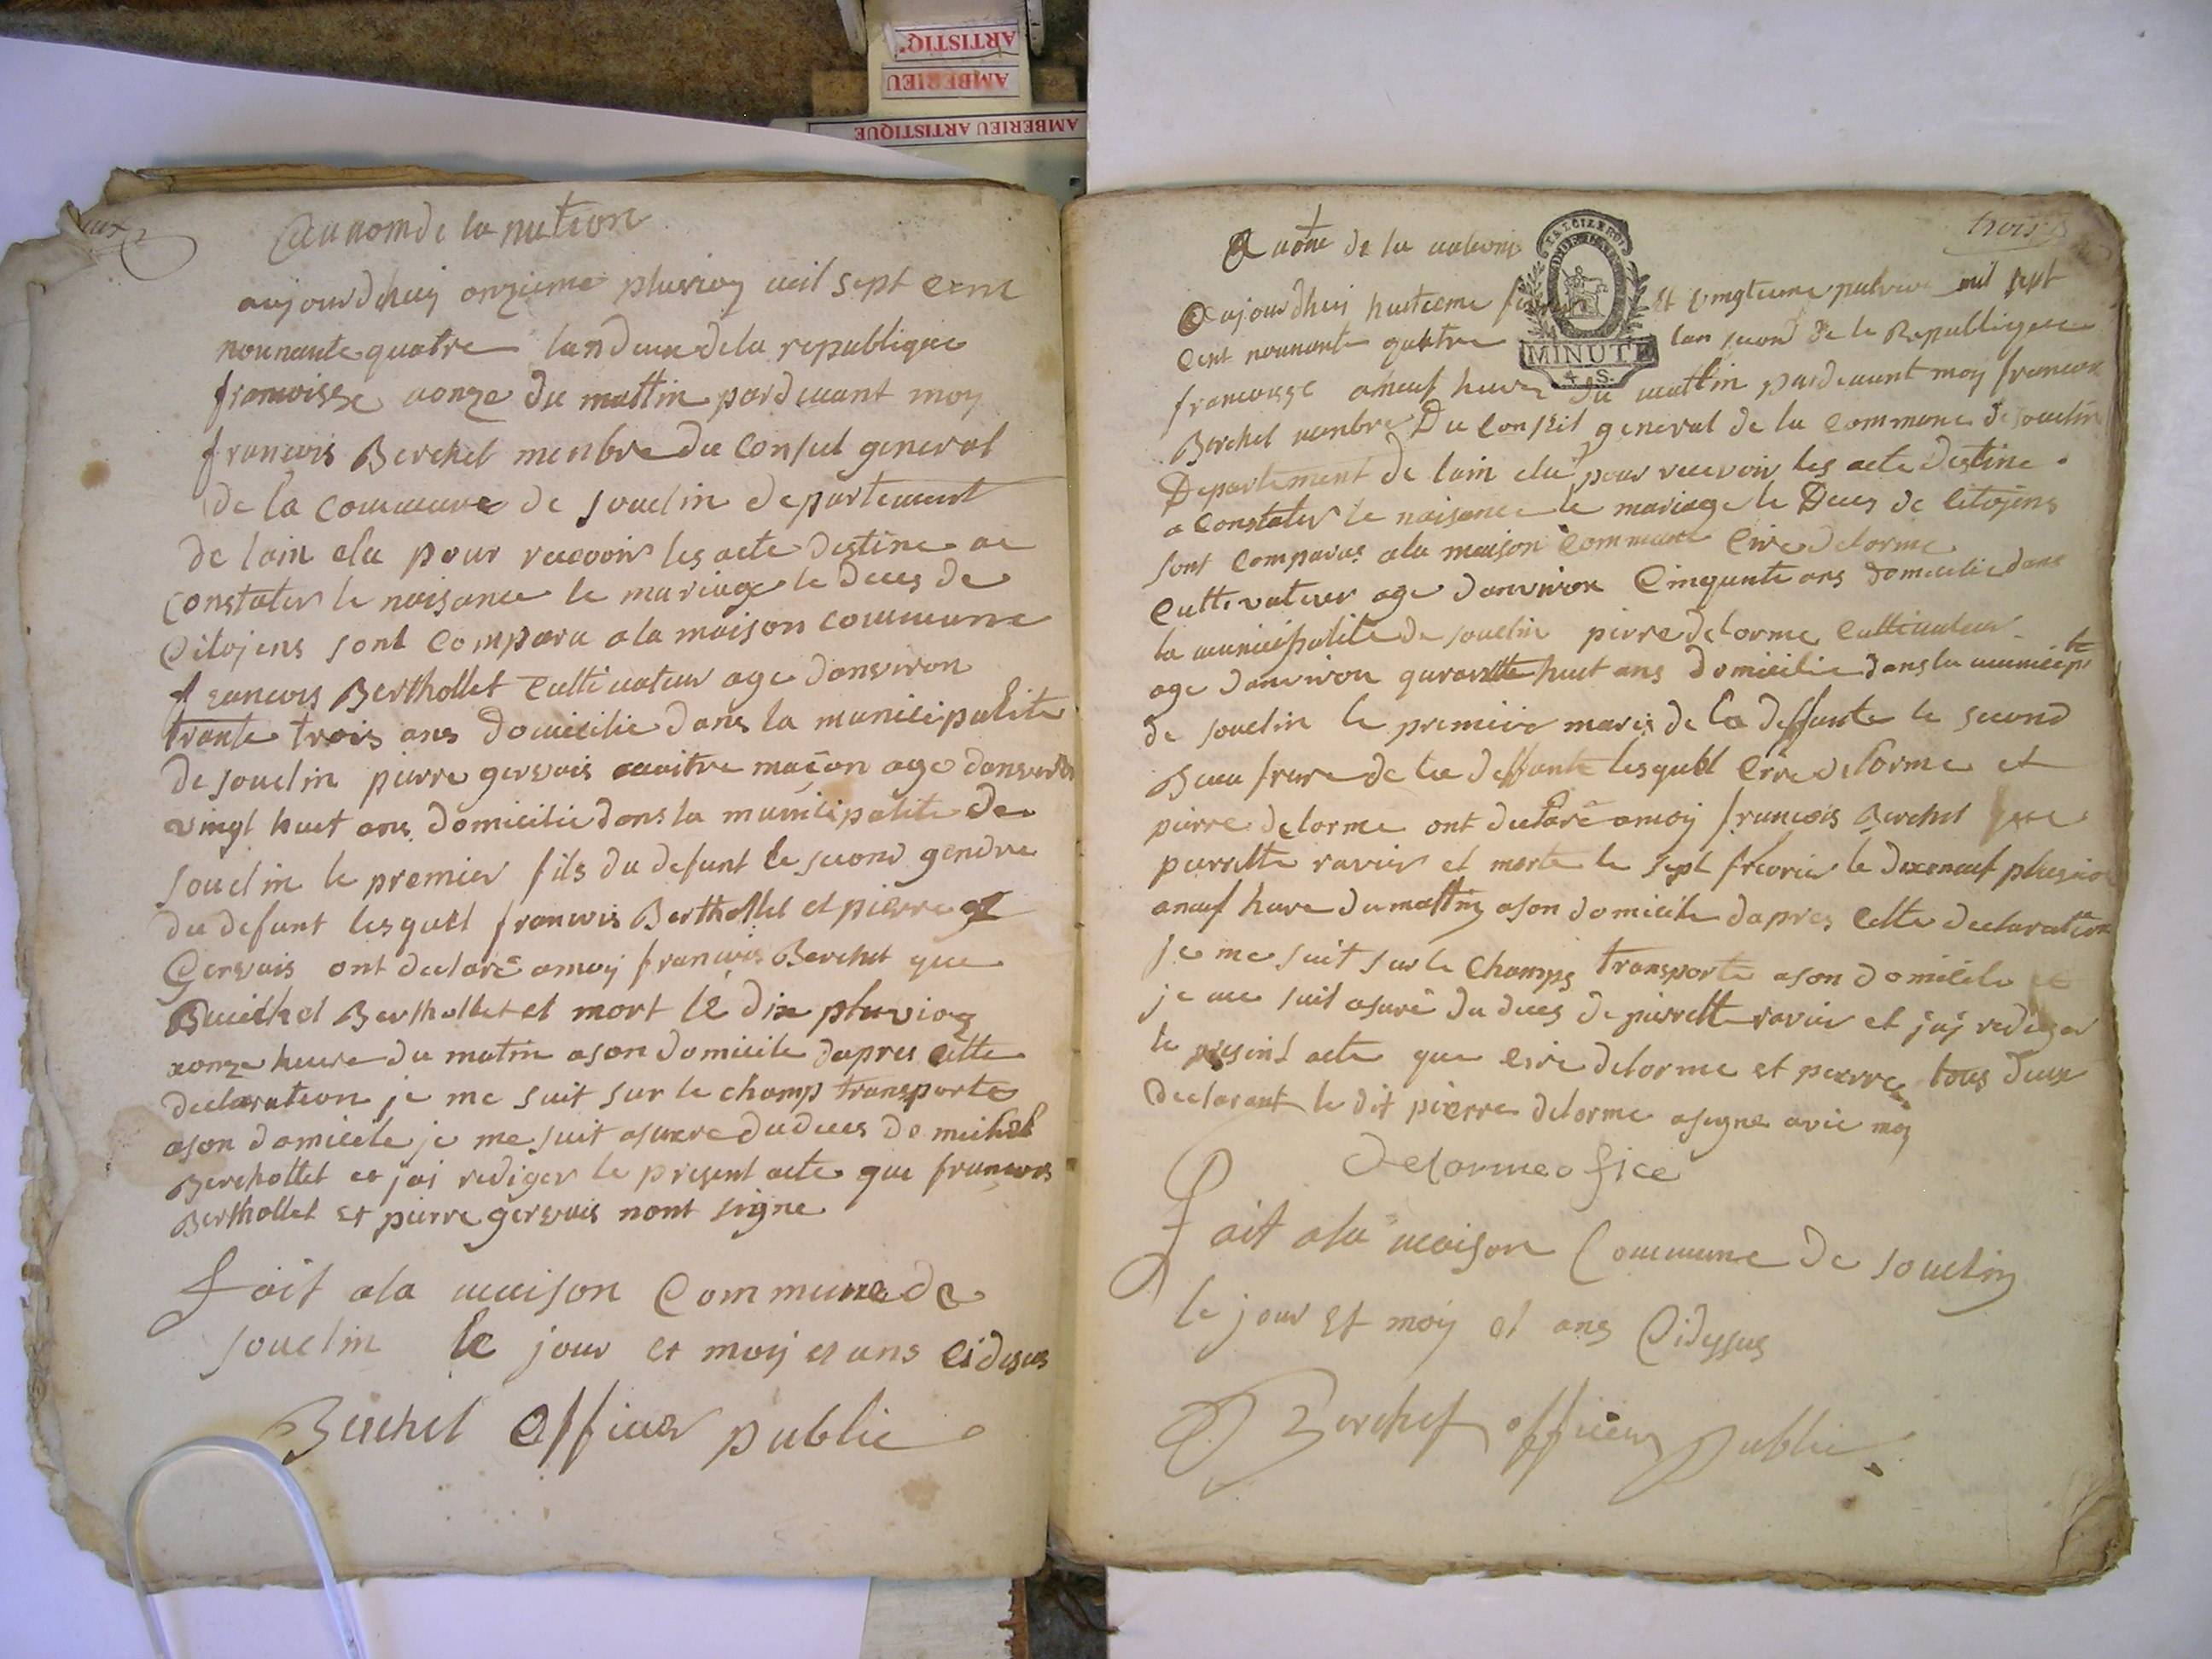 ARTISTIQ
AMBERIEU
AMBERIEU ARTISTIQUE
au nom de la nation
aujourdhuy onzieme pluvioz mil sept cent
nonnante quatre lan deux de la republique
francoisse aonze du mattin pardevant moy
francois Berchet menbre du Conseil general
de la commune de souclin departement
de lain elu pour recevoir les acte destine a
constater le naisance le mariage le deces de
Citojens sont Compara a la maison commune
francois Berthollet Cultivateur age danviron
trante trois ans domicilie dans la municipalite
de souclin pierre gervais maitre maçon age danviron
vingt huit ans domicilie dans la municipalite de
souclin le premier fils du defunt le second gendre
du defunt lesquel francois Berthollet et pierre
Gervais ont declaré amoy francois Berchet que
Michel Berthollet et mort le dix pluvioz
aonze heure du matin ason domicile dapres cette
declaration je me suit sur le champ transporte
ason domicile je me suit asurre du deces de michel
Berthollet et jai rediger le present acte que francois
Berthollet et pierre gervais nont signe
fait ala maison Commune de
souclin le jour et moy et ans cidesus
Berchet officier public
trois
Au nom de la nation
Aujourdhuy huitieme et vingtieme mil sept
cent nonnante quattre lan second de la Republique
francoisse aneuf heure du mattin pardevant moy francois
Berchet menbre Du Conseil general de la Commune de souclin
Departement de lain elu pour recevoir les acte destine
a Constater le naisance le mariage le Deces de Citojens
sont Comparus ala maison Commune Cire delorme
Cultivateur age danviron Cinquante ans domicilie dans
la municipalite de souclin pierre delorme Cultivateur
age danviron quarantte huit ans domicilie dans la municipte
de souclin le premier maris de la deffunte le second
Beau frere de la deffunte lesquel Cire delorme et
pierre delorme ont declaré amoy francois Berchet que
pierrette ravier et morte le sept fevrier le dixeneuf pluvioz
aneuf heure du mattin ason domicile dapres cette declaration
je me suit sur le champs transporte ason domicile et
je me suit asuré du deces de pierrette ravier et jaj rediger
le present acte que cire delorme et pierre tous deux
declarant le dit pierre delorme asigne avec moy
Delorme
MINUTE
4 S.
fait ala maison Commune de souclin
le jour et moy et ans Cidessus
Berchet officier public